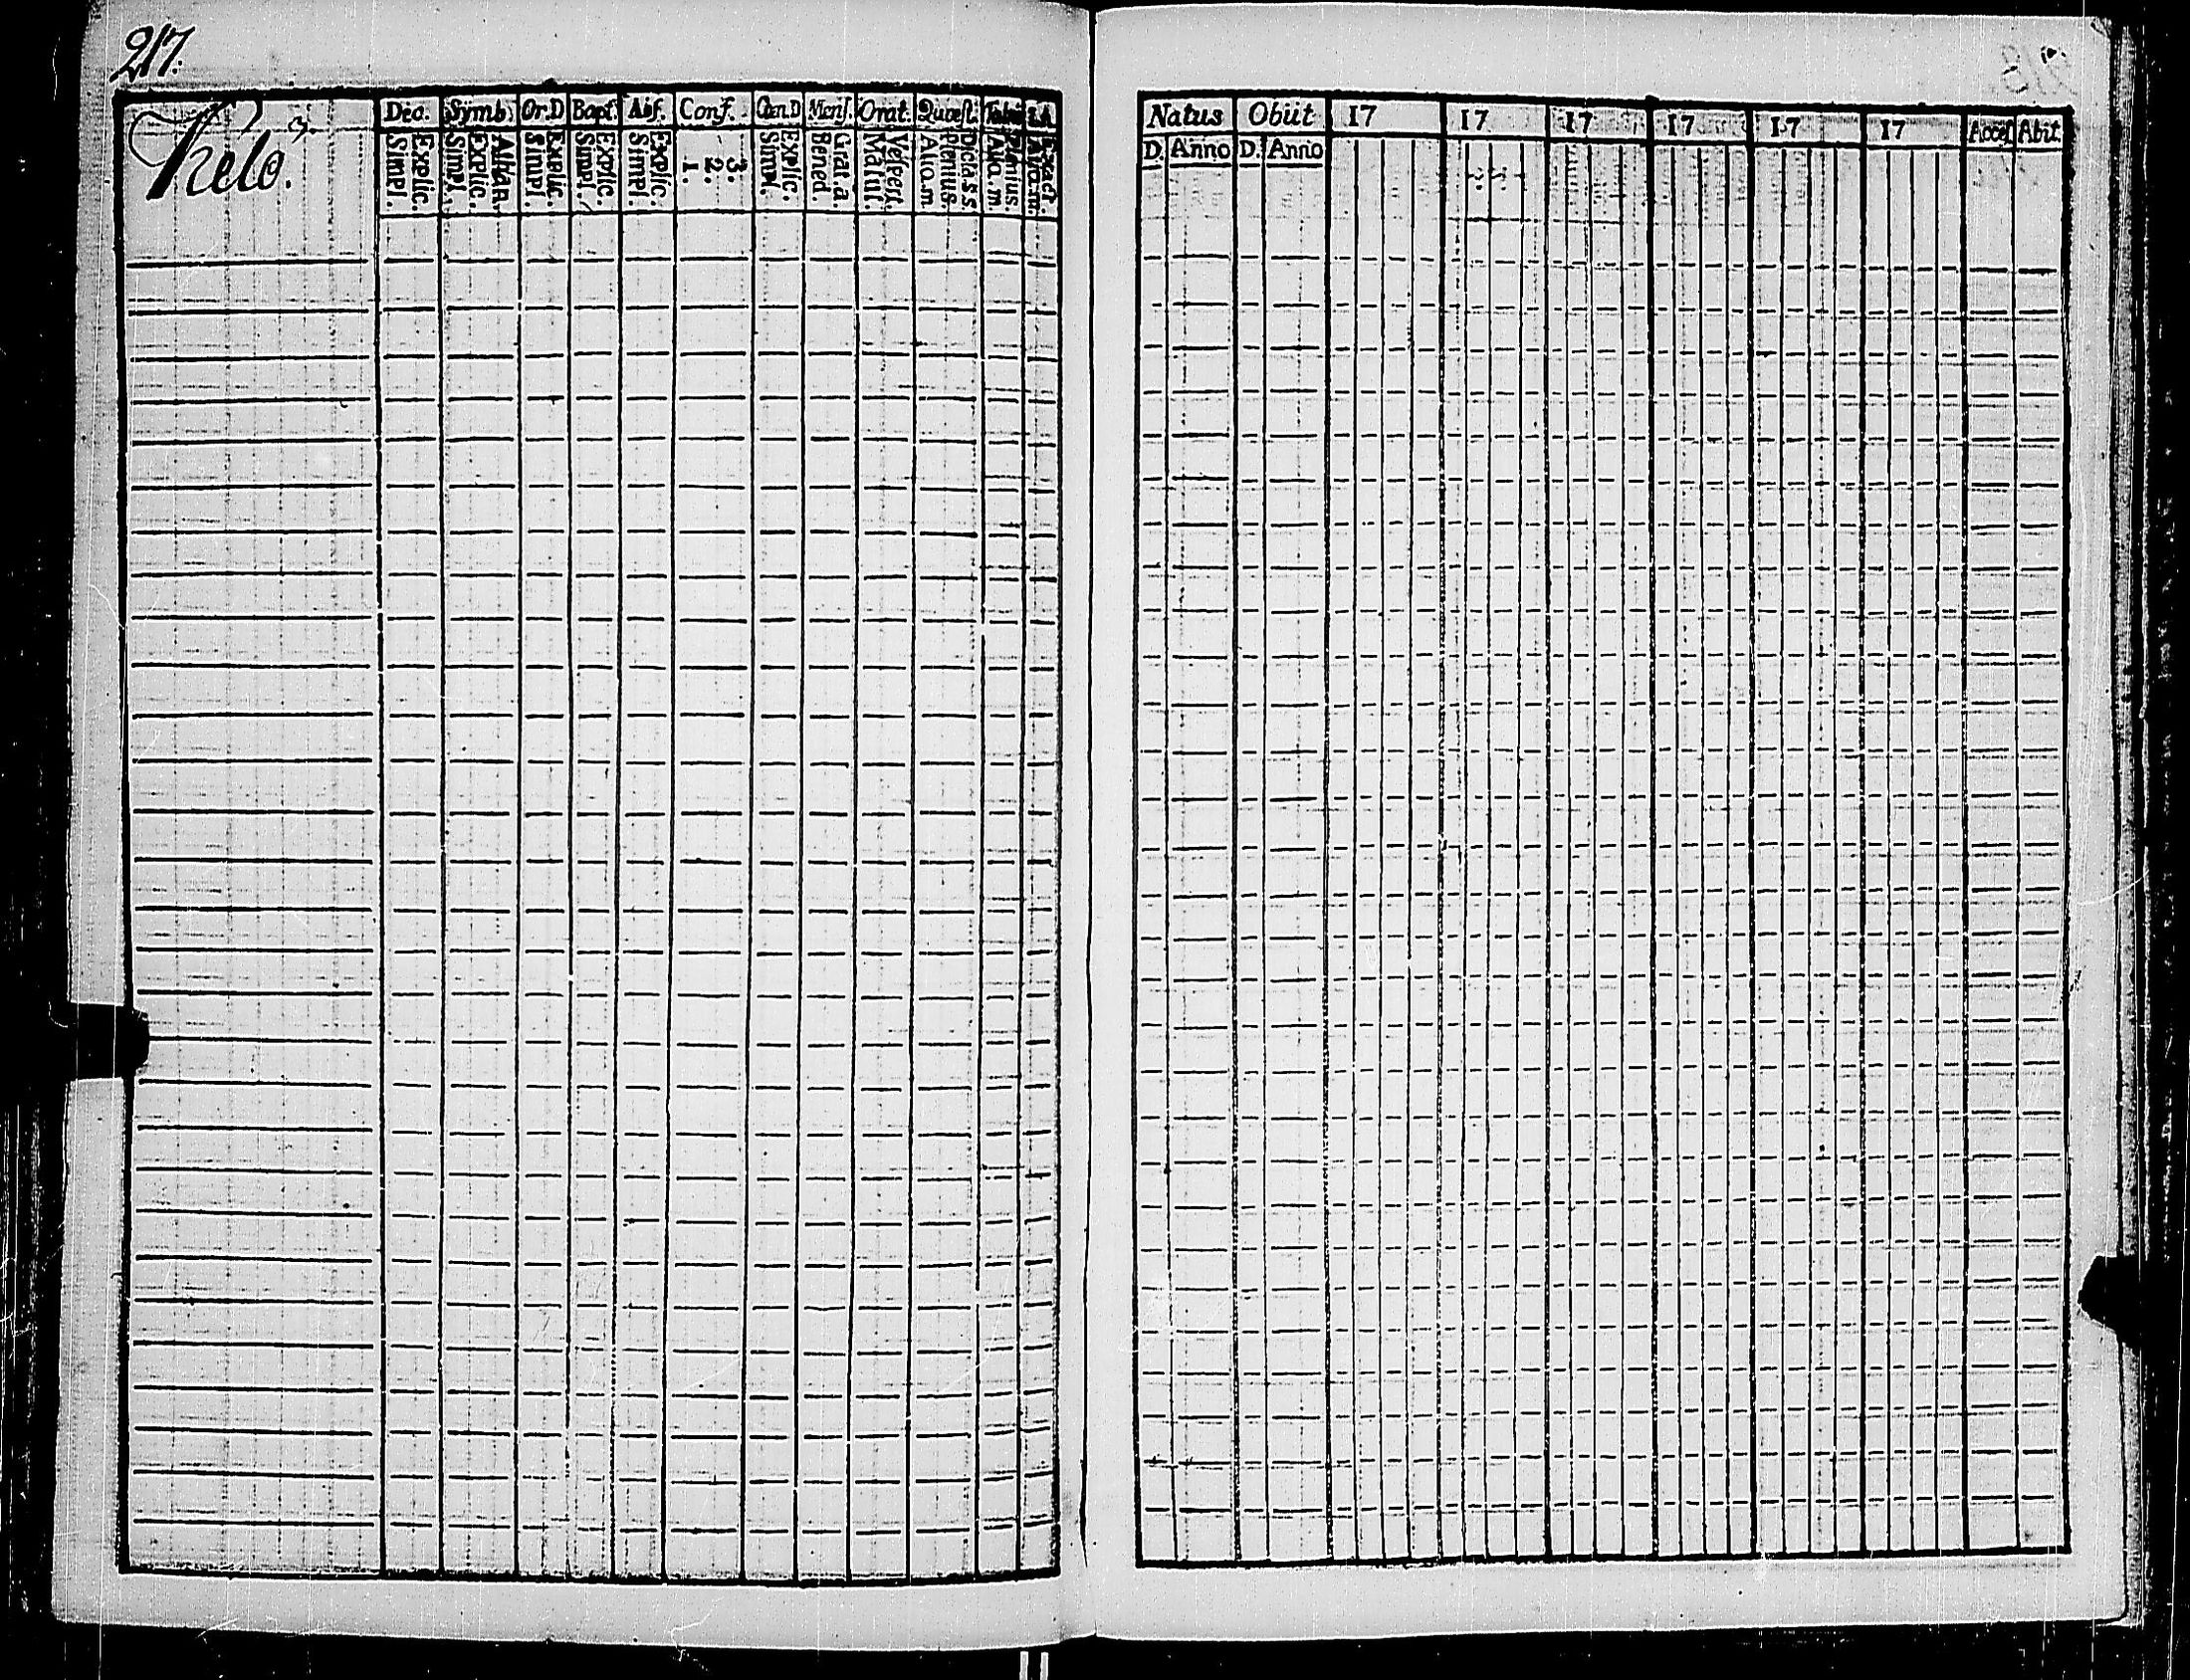 217.
Kelo. 3.
Dec. Symb. Or.D Bapt. Abs. Conf. Cœn.D Mens. Orat. Quæst. Tabu
Explic. Simpl.
Athan. Explic. Simpl.
Explic. Simpl.
Explic. Simpl.
Explic. Simpl.
3. 2. 1.
Explic. Simpl.
Grat.a. Bened.
Vespert. Matut.
Dicta s.s. Plenius. Aliq.m.
Plenius. Aliq.m.
Exact. Aliq.m.
Natus Obiit 17 17 17 17 17 17 Acces. Abit.
D. Anno D. Anno